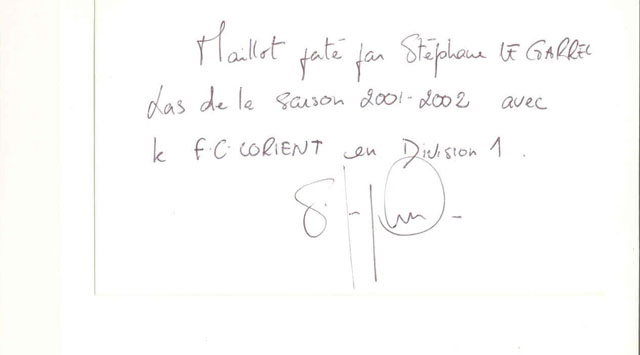 Maillot porté par Stéphane LE GARREC
Lors de la saison 2001-2002 avec
le F.C. LORIENT en Division 1.